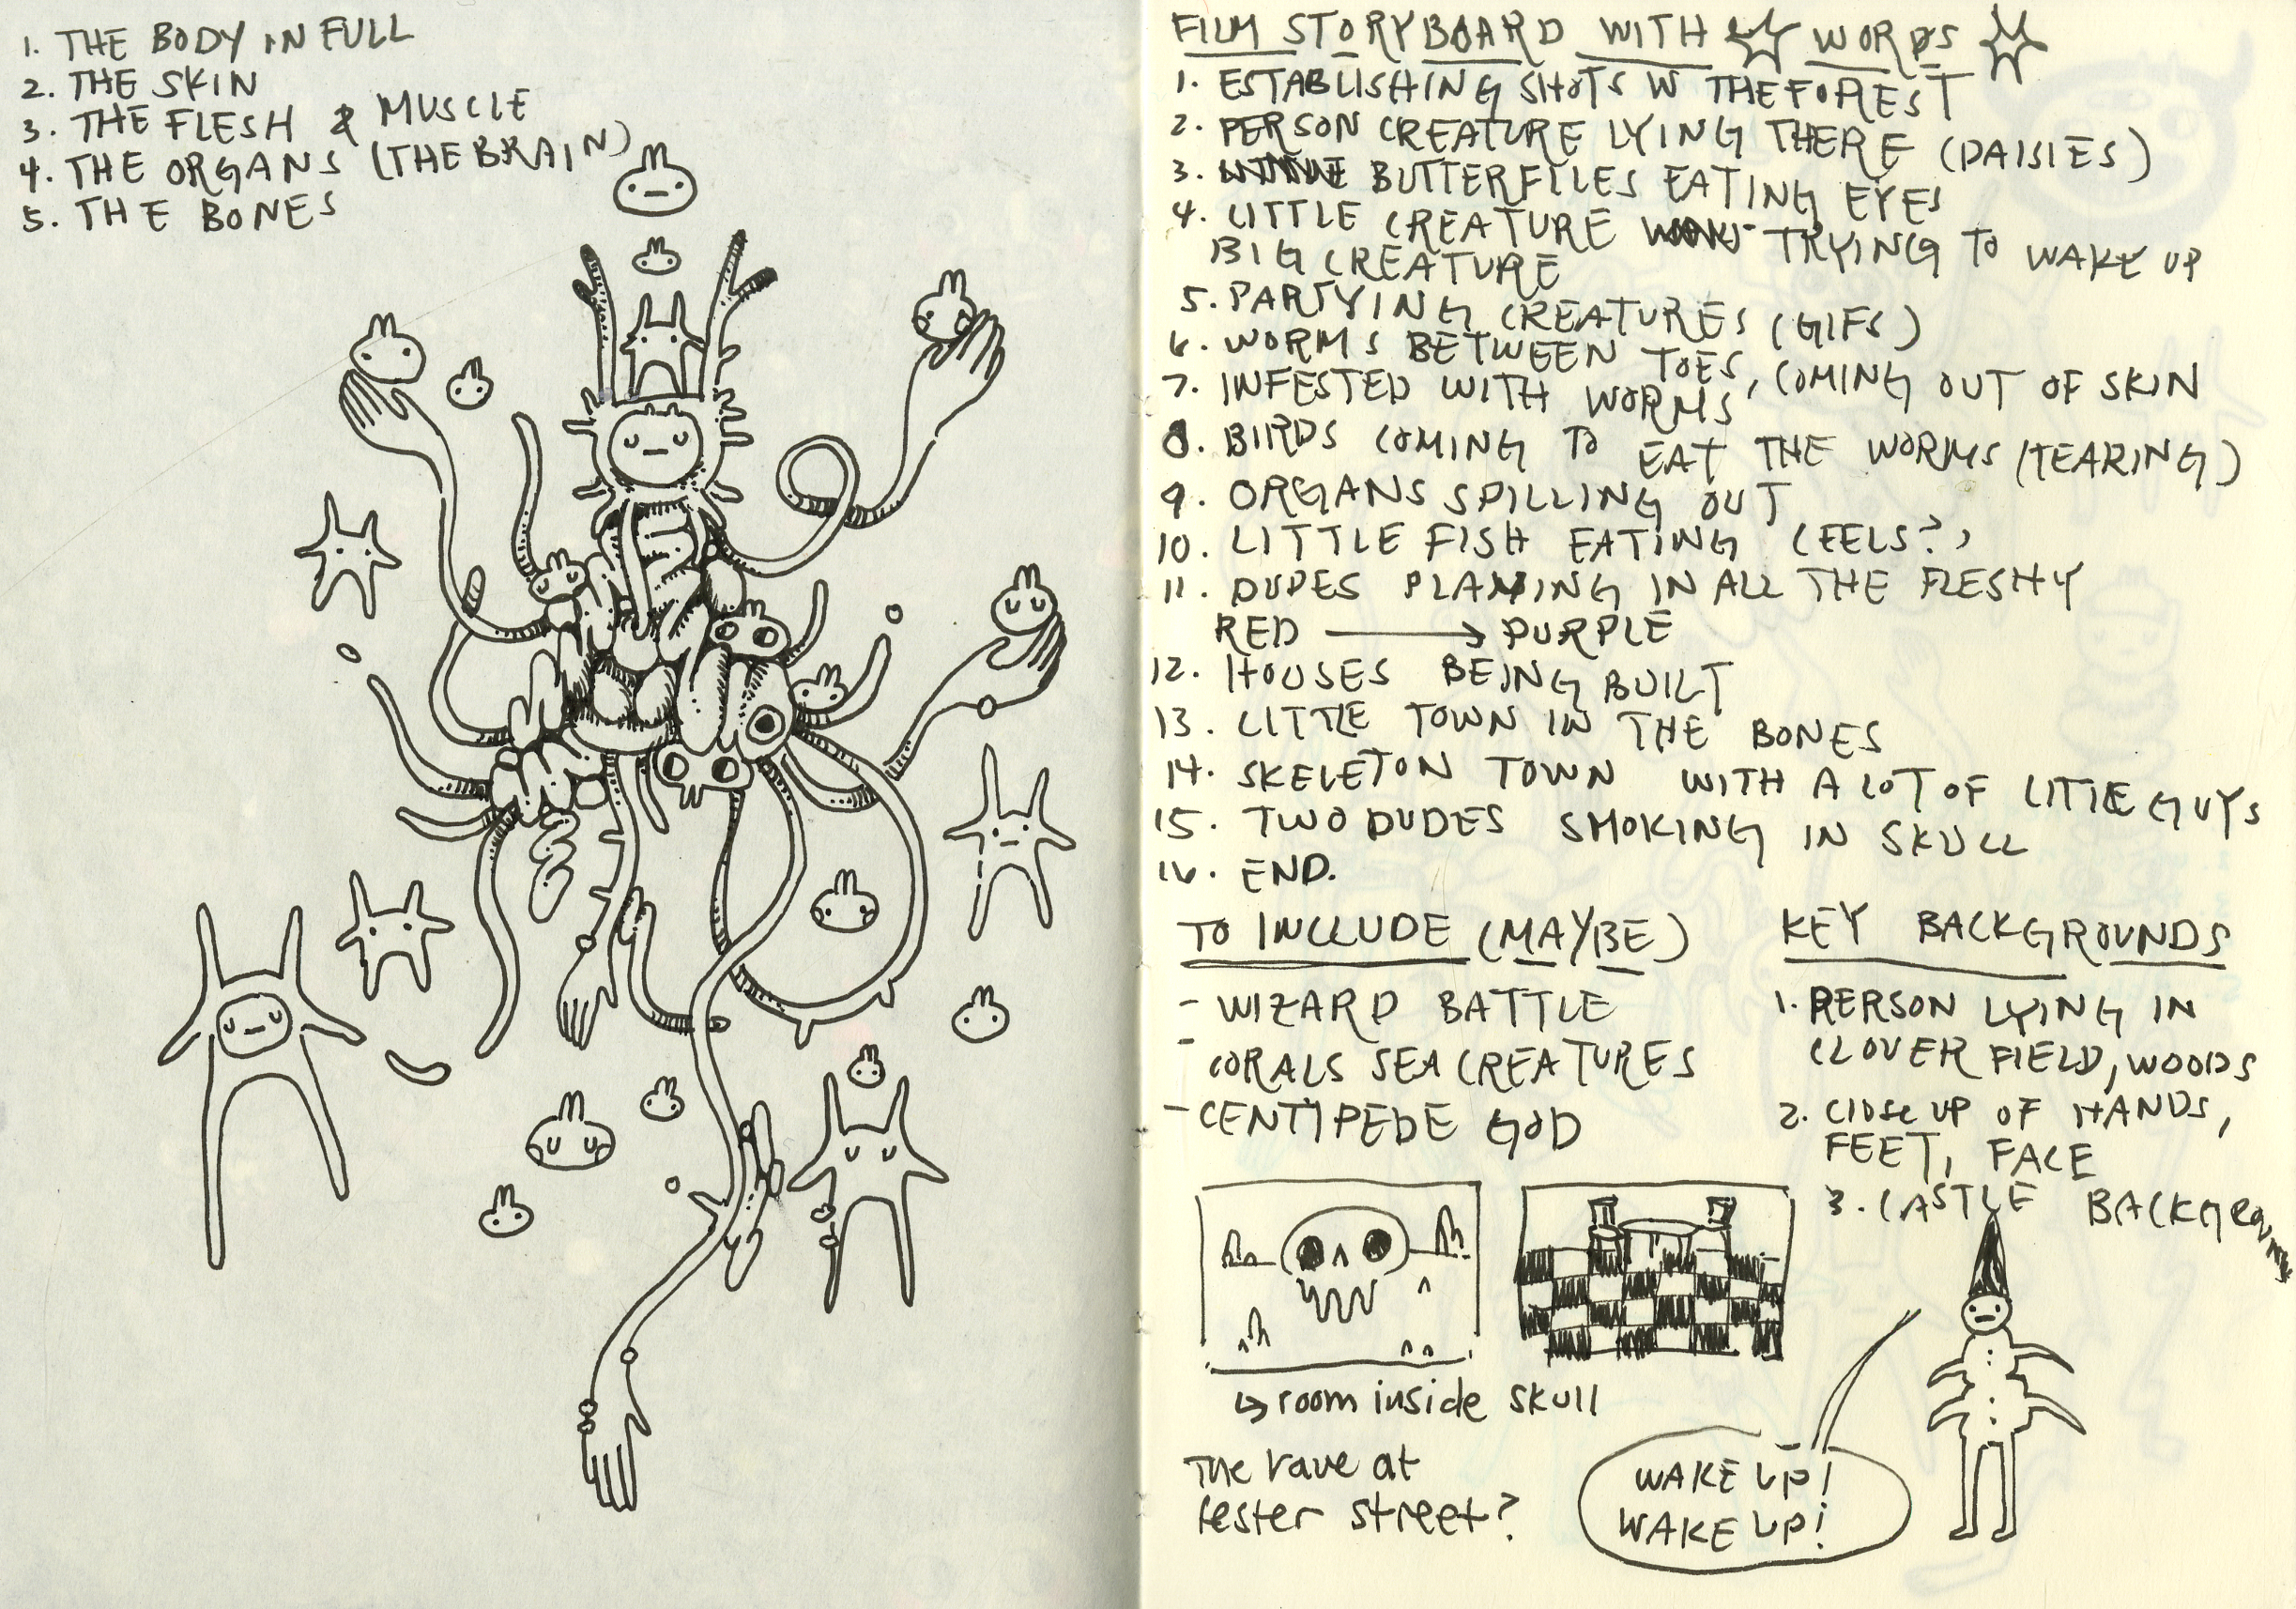 1. THE BODY IN FULL
2. THE SKIN
3. THE FLESH & MUSCLE
4. THE ORGANS (THE BRAIN)
5. THE BONES
FILM STORYBOARD WITH WORDS
1. ESTABLISHING SHOTS W THE FOREST
2. PERSON CREATURE LYING THERE (DAISIES)
3. BUTTERFLIES EATING EYES
4. LITTLE CREATURE TRYING TO WAKE UP
BIG CREATURE
5. PARTYING CREATURES (GIFS)
6. WORMS BETWEEN TOES, COMING OUT OF SKIN
7. INFESTED WITH WORMS
8. BIRDS COMING TO EAT THE WORMS (TEARING)
9. ORGANS SPILLING OUT
10. LITTLE FISH EATING (EELS?)
11. DUDES PLAYING IN ALL THE FLESHY
RED → PURPLE
12. HOUSES BEING BUILT
13. LITTLE TOWN IN THE BONES
14. SKELETON TOWN WITH A LOT OF LITTLE GUYS
15. TWO DUDES SMOKING IN SKULL
16. END.
TO INCLUDE (MAYBE)
- WIZARD BATTLE
- CORALS SEA CREATURES
- CENTIPEDE GOD
KEY BACKGROUNDS
1. PERSON LYING IN
CLOVER FIELD, WOODS
2. CLOSE UP OF HANDS,
FEET, FACE
3. CASTLE BACKGROUND
↳ room inside skull
The rave at
fester street?
WAKE UP!
WAKE UP!